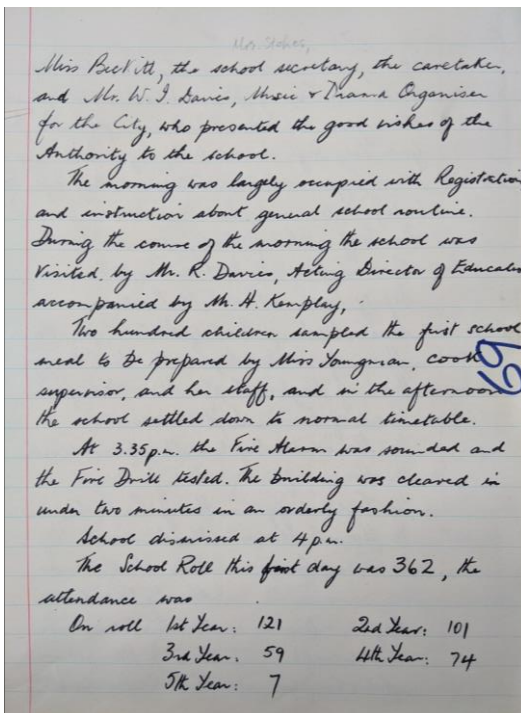 Mrs. Stokes,
Miss Beckett, the school secretary, the caretaker,
and Mr. W. I. Davies, Music & Drama Organiser
for the City, who presented the good wishes of the
Authority to the school.
The morning was largely occupied with Registration
and instruction about general school routine.
During the course of the morning the school was
visited by Mr. R. Davies, Acting Director of Education
accompanied by Mr. H. Kemplay,
Two hundred children sampled the first school
meal to be prepared by Miss Youngman, cook
supervisor, and her staff, and in the afternoon
69
the school settled down to normal timetable.
At 3.35 p.m. the Fire Alarm was sounded and
the Fire Drill tested. The building was cleared in
under two minutes in an orderly fashion.
School dismissed at 4 p.m.
The School Roll this first day was 362, the
attendance was
On roll 1st Year: 121 2nd Year: 101
3rd Year: 59 4th Year: 74
5th Year: 7